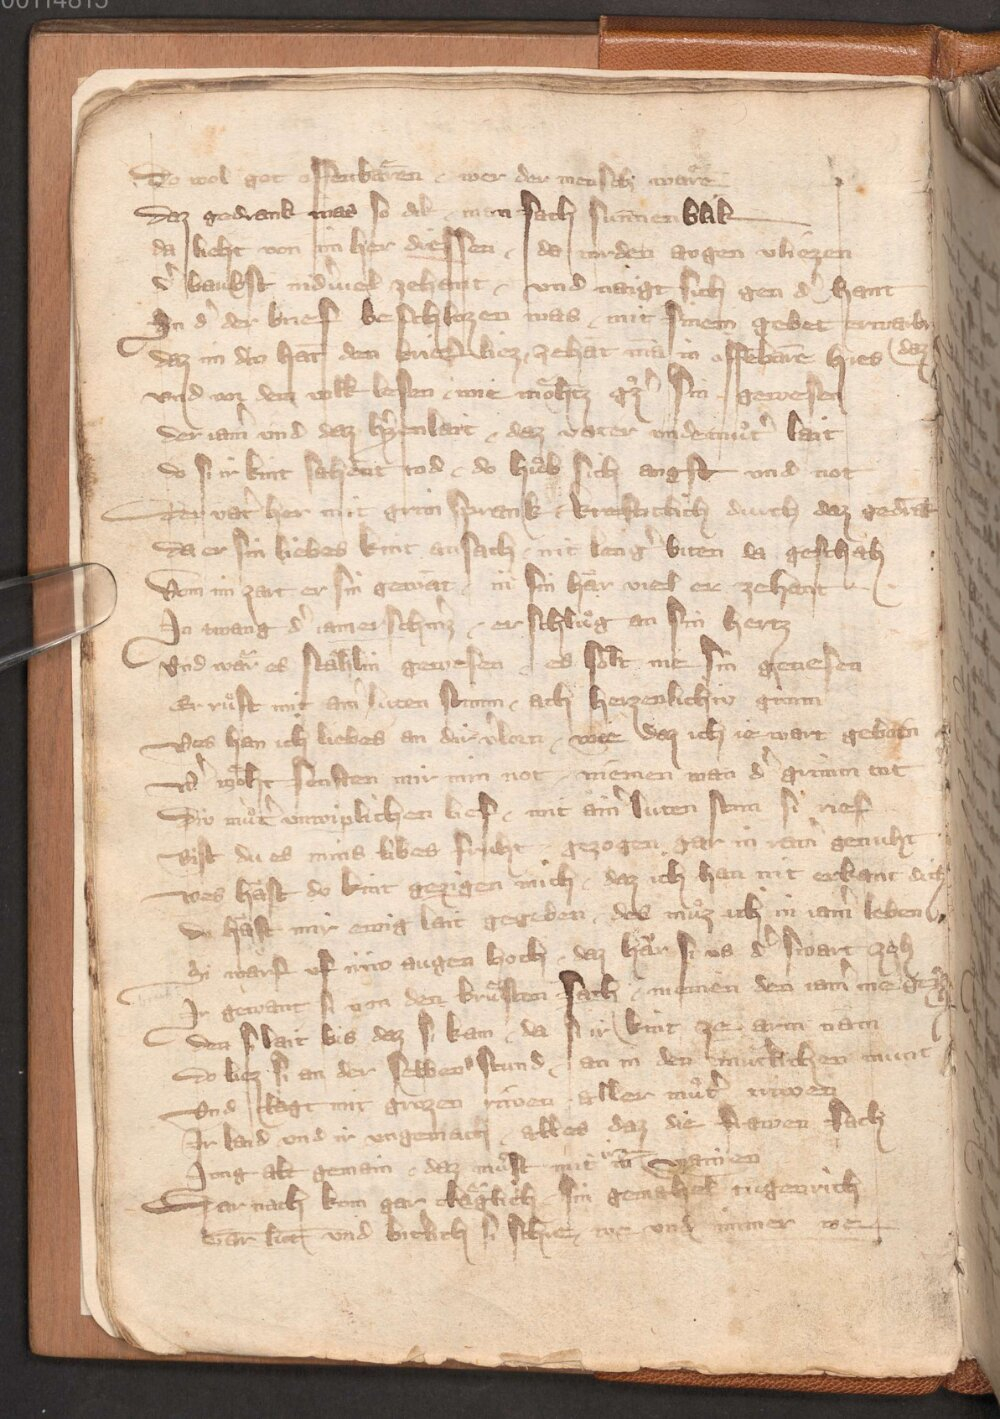 00114815
Do wol got offenbären wer der mensch wäre
daz gedrank was so dik man sach sunnen blik
da lieht von im her diessen da wrden augen vliezen
d' baubst nidviel zehant und naigt sich gen d' hant
In d' der brief beschlozen was mit sinem gebet erwarb
daz im div hant den brief liez zehāt mā in offēbäre hies daz
und vor dem volk lesen wie möhtz gz' sin gewesen
der iam' und daz hzenlait daz vater und' mut' lait
do si ir kint sahent tod do hub sich angst und not
Der vat' her mit grim sprank kreftiklich durch daz gedrāk
Da er sin liebes kint ansach nit leng' biten da geschah
Von im zart er sin gewāt in sin här viel er zehant
In twang d' iamer schmz er schlug an sin hertz
Und wär es stählin gewesen es solt nie sin genesen
Er ruft mit aim' luten stimm ach herzenlichiv grimm
Wes han ich liebes an dir vlorn we daz ich ie wart geborn
W' möht senften mir min not niemen wan d' grimm tot
Div mut' unwiplichen lief mit aim' luten stim si rief
Bist du es mins libes fruht gezogen gar in rain' genuht
Wes häst do kint gezigen mich daz ich han nit erkant dich
du häst mir ewig lait gegeben des muz ich in iam' leben
Si warf uf iriv augen hoch daz här si us d' swart zoh
Ir gewant si von den brüsten sach niemen den iam' me
den si lait bis daz si kam da si ir kint ze arm nam
Do liez si an der selben stund an in den munt
Und klagt mit grozen riwen aller mut' triwen
Ir laid und ir ungemach alles daz die frawen sach
Jung alt gemain daz must mit ir wainen
Dar nach kom gar kläglich sin gemahel tugenrich
Gar lut und bitlich si schre we und immer we